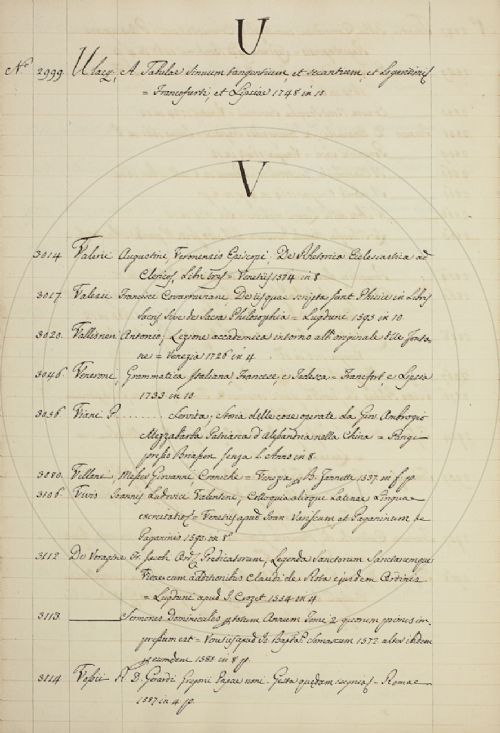 U
No. 2999. Ulacq, A. Tabulae sinuum tangentium, et secantium, et Logarithmis
= Francofurti, et Lipsiae 1748 in 10
V
3014. Valerii Augustini, Veronensis Episcopi, De Rhetorica Ecclesiastica ad
Clericos, Libri tres = Venetiis 1574 in 8
3017. Valesii Francisci Covarruviane De iis quae scripta sunt Phisice in Libris
sacris sive de Sacra Philosophia = Lugduni 1595 in 10
3020. Vallisneri Antonio; Lezione accademica intorno all'originale delle fonta-
ne = Venezia 1726 in 4
3046. Venerone, Grammatica Italiana, Francese, e Tedesca = Francfort e Lipsia
1733 in 10
3056. Viani P. ........ Servita; Storia delle cose operate da Gio: Ambrogio
Mezzabarba Patriarca d'Alessandria nella China = Parigi
presso Briasson senza l'Anno in 8
3080. Villani, Messer Giovanni, Croniche = Venezia B. Zannetti 1537 in f.
3106. Vivis Joannis Ludovici Valentini, Colloquia Latinae Linguae
exercitatio = Venetiis apud Joan Variscum et Paganinum de
Paganinis 1590 in 8
3112. De Voragine Fr. Jacob Ord. Predicatorum, Legenda Sanctorum Sanctarumque
Claudi de Rota ejusdem Ordinis
= Lugduni apud J. Crozet 1554 in 4
3113. ———— Sermones Dominicales totum Annum Tome 2 quorum primus im-
pressum est = Venetiis apud Jo. Bapta. Somascum 1572 alter ibidem
eumdem 1580 in 8
3114. Vossii R. D. Gerardi Gregorii Papae noni Gesta quaedam = Romae
1587 in 4